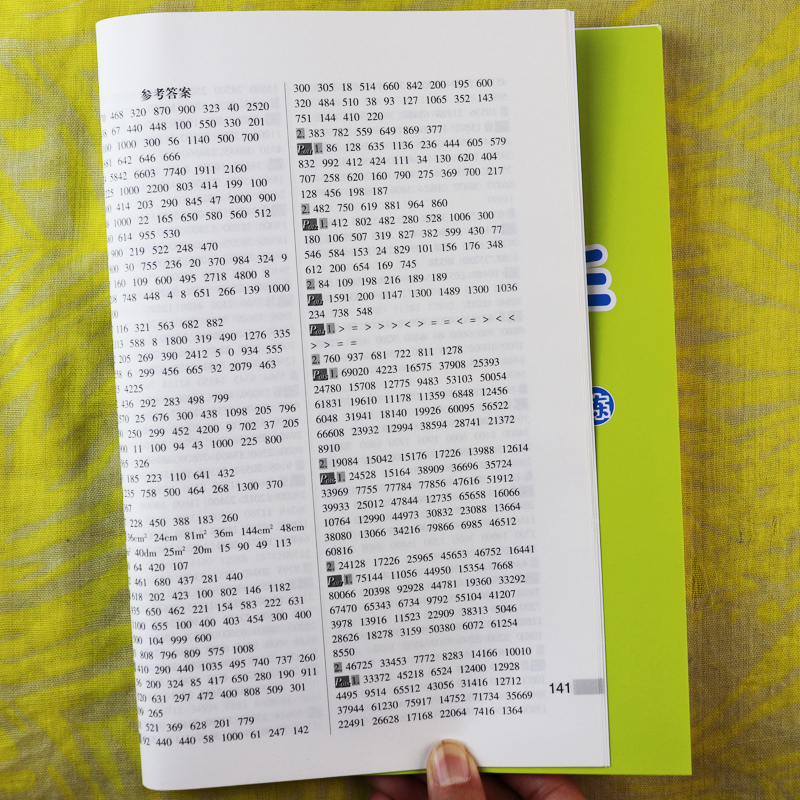 参考答案
468 320 870 900 323 40 2520
67 440 448 100 550 330 201
1000 300 56 1140 500 700
642 646 666
5842 6603 7740 1911 2160
1000 2200 803 414 199 100
414 203 290 845 47 2000 900
1000 22 165 650 580 560 512
614 955 530
900 219 522 248 470
30 755 236 20 370 984 324 9
160 109 600 495 2718 4800 8
748 448 4 8 651 266 139 1000
116 321 563 682 882
588 8 1800 319 490 1276 335
205 269 390 2412 5 0 934 555
6 299 456 665 32 2079 463
4225
436 292 283 498 799
25 676 300 438 1098 205 796
250 299 452 4200 9 702 37 205
11 100 94 43 1000 225 800
326
185 223 110 641 432
758 500 464 268 1300 370
228 450 388 183 260
24cm 81m² 36m 144cm² 48cm
40dm 25m² 20m 15 90 49 113
64 420 107
461 680 437 281 440
202 423 100 802 146 1182
650 462 221 154 583 222 631
655 100 400 403 454 300 400
104 999 600
808 796 809 575 1008
290 440 1035 495 740 737 260
200 324 85 417 650 280 190 911
631 297 472 400 808 509 301
265
521 369 628 201 779
440 440 58 1000 61 247 142
300 305 18 514 660 842 200 195 600
320 484 510 38 93 127 1065 352 143
751 144 410 220
2. 383 782 559 649 869 377
1. 86 128 635 1136 236 444 605 579
832 992 412 424 111 34 130 620 404
707 258 620 160 790 275 369 700 217
128 456 198 187
2. 482 750 619 881 964 860
1. 412 802 482 280 528 1006 300
180 106 507 319 827 382 599 430 77
546 584 153 24 829 101 156 176 348
612 200 654 169 745
2. 84 109 198 216 189 189
1591 200 1147 1300 1489 1300 1036
234 738 548
1. > = > > > < > = = < = > < <
> > = =
2. 760 937 681 722 811 1278
1. 69020 4223 16575 37908 25393
24780 15708 12775 9483 53103 50054
61831 19610 11178 11359 6848 12456
6048 31941 18140 19926 60095 56522
66608 23932 12994 38594 28741 21372
8910
2. 19084 15042 15176 17226 13988 12614
1. 24528 15164 38909 36696 35724
33969 7755 77784 77856 47616 51912
39933 25012 47844 12735 65658 16066
10764 12990 44973 30832 23088 13664
38080 13066 34216 79866 6985 46512
60816
2. 24128 17226 25965 45653 46752 16441
1. 75144 11056 44950 15354 7668
80066 20398 92928 44781 19360 33292
67470 65343 6734 9792 55104 41207
3978 13916 11523 22909 38313 5046
28626 18278 3159 50380 6072 61254
8550
2. 46725 33453 7772 8283 14166 10010
1. 33372 45218 6524 12400 12928
4495 9514 65512 43056 31416 12712
37944 61230 75917 14752 71734 35669
22491 26628 17168 22064 7416 1364
141